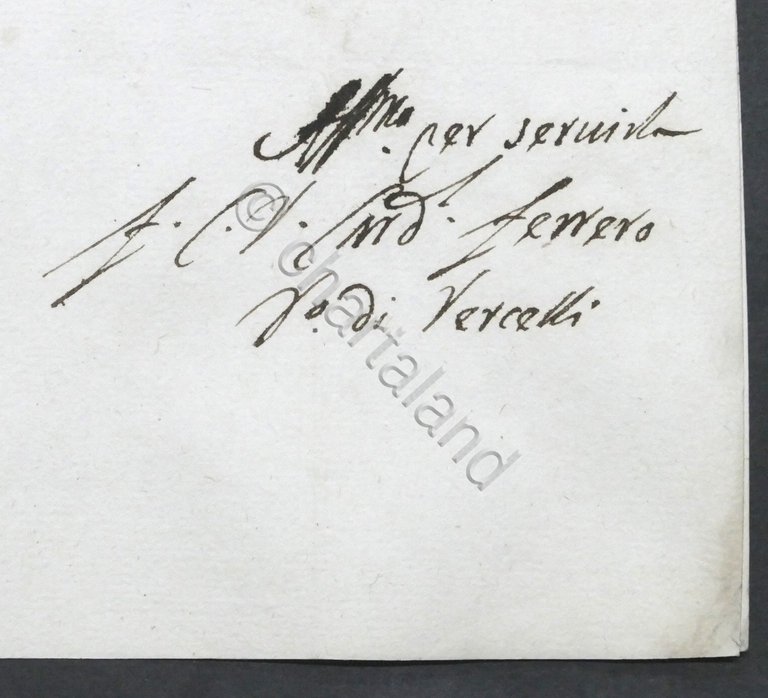 Aff.mo per servirla
f. C. V. Card. Ferrero
Vo. di Vercelli
© chartaland